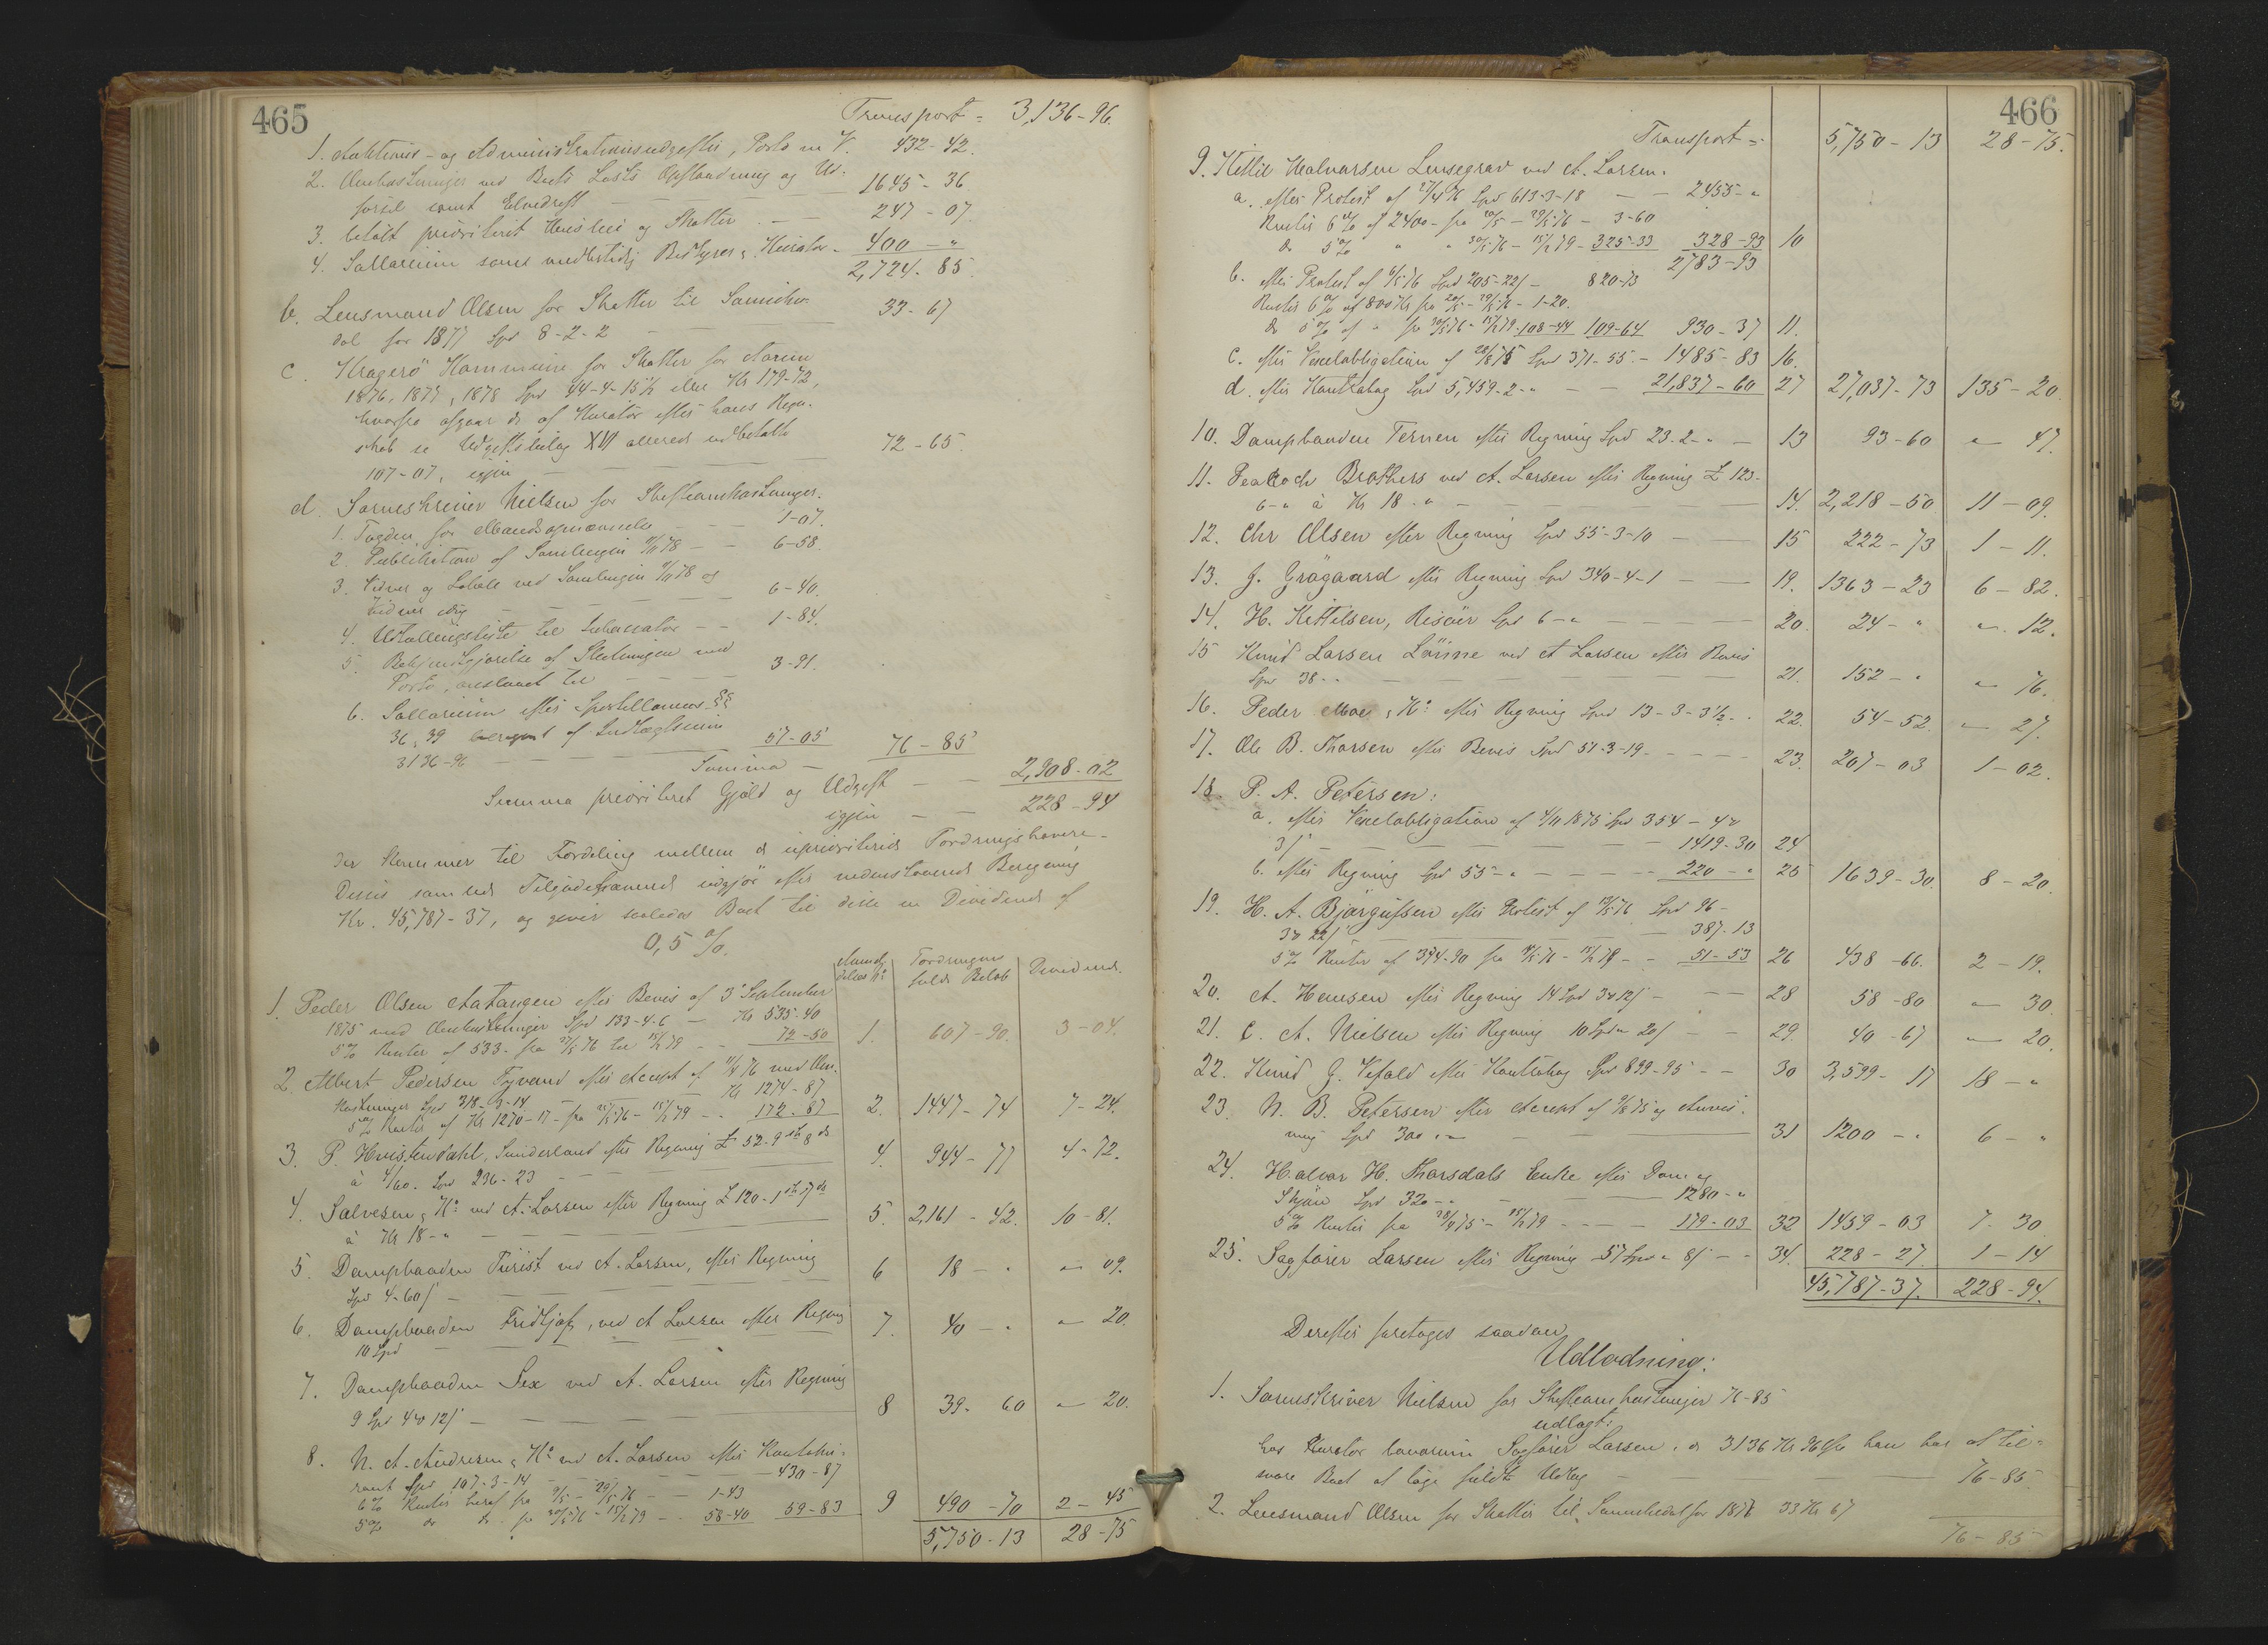 465
Transport = 3,136-96.
1. Auktions- og Administrationsudgifter, Porto m V. 432-42.
2. Omkostninger ved Brets Lasts Opstandning og Ud-
försel samt Elvedrift — — 1645-36.
3. betalt prioriteret Huusleie og Skatter — — 247-07.
4. Sallarium som midlertidig Bestyrer & Kurator — 400-"
2,724-85.
b. Lensmand Olsen for Skatter til Sannike-
dal for 1877 Spd 8-2-2 — — 33-67
c. Kragerö Kommune for Skatter for Aarene
1876, 1877, 1878 Spd 44-4-15½ eller Kr 179-72,
hvorfra afgaar de af Kurator efter hans Regn-
skab se Udgiftsbilag XVI allerede udbetalte
107-07, igjen — — 72-65.
d. Sorenskriver Nielsen for Skifteomkostninger.
1. Tagden for Mandsopnævnelse — — 1-07.
2. Publikation af Samlingen 9/11 78 — — 6-58.
3. Vidner og Lokale ved Samlingen 9/11 78 og
Vidner idag — — 6-40.
4. Udtallingsliste til Kurator — — 1-84.
5. Bekjendtgjörelse af Slutningen med
Porto, anslaaet til — — 3-91.
6. Sallarium efter Sportellovens §§
36, 39 beregnet af Indtægtssum
3136-96 — — 57-05 76-85
Summa —
Summa prioriteret Gjæld og Udgift — — 2,908-02
igjen — — 228-94
der kommer til Fordeling mellem de uprioriterede Fordringshavere.
Disses samlede Tilgodehavende udgjör efter nedenstaaende Beregning
Kr. 45,787-37, og giver saaledes Boet til disse en Dividende af
0,5 %.
Anmel-
delses No Fordringens
fulde Belöb Dividende.
1. Peder Olsen Aatangen efter Bevis af 3 September
1875 med Omkostninger Spd 133-4-6 — Kr 535-40
5% Renter af 533- fra 27/5 76 til 15/2 79 — 72-50 1. 607-90. 3-04.
2 Albert Pedersen Tyvand efter Accept af 11/4 76 med Om-
kostninger Spd 318-3-14 — Kr 1274-87
5% Renter af Kr 1270-17- fra 25/5 76 - 15/2 79 — 172-87 2. 1447-74 7-24.
3. P. Hvistendahl, Sunderland efter Regning £ 52-9 sh 8 d
à 4/60. Spd 236-23 — — 4. 944-77 4-72.
4. Salvesen & Ko. ved A. Larsen efter Regning £ 120-1 sh 7 d
à Kr 18-" — — 5. 2,161-42. 10-81.
5. Dampbaaden Turist ved A. Larsen, efter Regning
Spd 4-60/ — — 6 18-" "-09.
6. Dampbaaden Fridtjof, ved A Larsen efter Regning
10 Spd — — 7. 40-" "-20.
7. Dampbaaden Sex ved A. Larsen efter Regning
9 Spd 4 12/ — — 8 39-60 "-20.
8. N. A. Andresen & Ko. ved A. Larsen efter Kontoku-
rant Spd 107-3-14 — — 430-87
6% Renter heraf fra 9/5 - 29/5 76 — 1-43
5% do do fra 30/5 76 - 15/2 79 — 58-40 59-83 9 490-70 2-45
5,750-13 28-75
466
Transport = 5,750-13 28-75.
9. Kittil Halvorsen Lensegrav ved A. Larsen.
a. efter Protest af 27/4 76 Spd 613-3-18 — — 2455-"
Renter 6% af 2400- fra 20/5 - 29/5 76 - 3-60
do 5% " " 30/5 76 - 15/2 79 - 325-33 328-93 10
2783-93
b. efter Protest af 6/5 76 Spd 205-22/ — 820-73
Renter 6% af 800 Kr fra 20/5 - 29/5 76 - 1-20.
do 5% af " fra 30/5 76 - 15/2 79 - 108-44 109-64 930-37 11.
c. efter Vexelobligation af 28/8 75 Spd 371-55. — 1485-83 16.
d. efter Kontrabog Spd 5,459-2-" — — 21,837-60 27 27,037-73 135-20.
10. Dampbaaden Ternen efter Regning Spd 23-2-" — 13 93-60 "-47.
11. Pealloch Brothers ved A. Larsen efter Regning £ 123-
6-" à Kr 18-" — — 14. 2,218-50. 11-09.
12. Chr Olsen efter Regning Spd 55-3-10 — — 15 222-73 1-11.
13. J. Grågaard efter Regning Spd 340-4-1 — — 19. 1363-23 6-82.
14. H. Kittilsen, Risöer Spd 6-" — — 20. 24-" "-12.
15 Knud Larsen Lönne ved A Larsen efter Bevis
Spd 38-" — — 21. 152-" "-76.
16. Peder Moe & Ko. efter Regning Spd 13-3-3½ - 22. 54-52. "-27.
17. Ole B. Thorsen efter Bevis Spd 51-3-19 — — 23. 207-03 1-02.
18. P. A. Petersen:
a. efter Vexelobligation af 4/11 1875 Spd 354-4
3/ — — 1419-30 24
b. efter Regning Spd 55-" — — 220-" 25 1639-30. 8-20.
19. H. A. Björgufsen efter Protest af 19/5 76 Spd 96-
3 22/ — — 387-13
5% Renter af 374-90 fra 19/5 76 - 15/2 79 — 51-53 26 438-66. 2-19.
20. A. Hansen efter Regning 14 Spd 3 12/ — — 28 58-80 "-30.
21. C. A. Nielsen efter Regning 10 Spd " 20/ — — 29. 40-67 "-20.
22. Knud J. Vefald efter Kontrabog Spd 899-95 — — 30 3,599-17 18-"
23. N. B. Petersen efter Accept af 9/8 75 og Anvis-
ning Spd 300 " — — 31 1200-" 6-"
24. Halvor H. Thorsdals Enke efter Dom og
Skjön Spd 320-" — 1280-"
5% Renter fra 28/4 75 - 15/2 79 — — 179-03 32 1459-03 7-30
25. Sagförer Larsen efter Regning 57 Spd " 8/ — 34. 228-27 1-14
45,787-37. 228-94.
Derefter foretoges saadan
Udlodning:
1. Sorenskriver Nielsen for Skifteomkostninger 76-85
udlagt:
hos Kurator bonorum Sagförer Larsen, de 3136 Kr 96 Öre han har at til-
svare Boet at tage fuldt Udlæg — — 76-85.
2. Lensmand Olsen for Skatter til Sannikedal for 1877 33 Kr 67
76-85